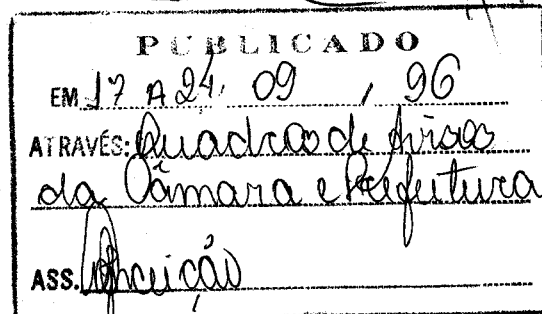 PUBLICADO
EM 17 A 24, 09 / 96
ATRAVÉS: Quadro de Avisos
da Câmara e Prefeitura
ASS. Conceição